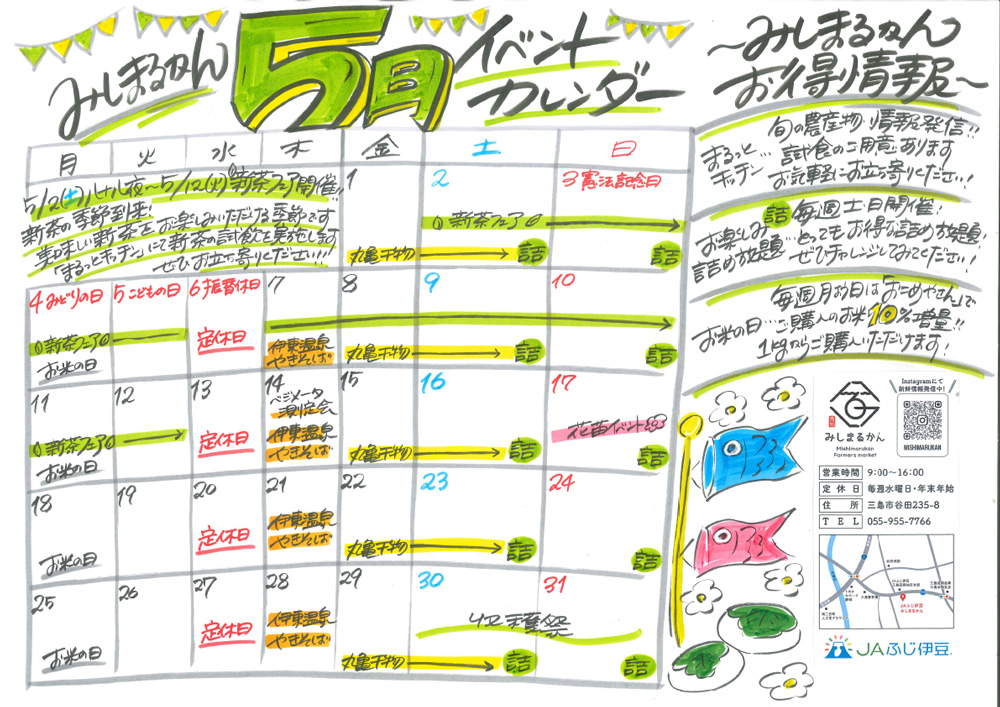 みしまるかん
5月
イベント
カレンダー
月 火 水 木 金 土 日
5/2(土)八十八夜～5/12(火)新茶フェア開催!!
新茶の季節到来!
美味しい新茶をお楽しみいただける季節です
「まるっとキッチン」にて新茶の試飲を実施します
ぜひお立ち寄りください!!!
1 2 3 憲法記念日
新茶フェア
丸亀干物 詰 詰
4 みどりの日 5 こどもの日 6 振替休日 7 8 9 10
新茶フェア
お米の日
定休日
伊東温泉
やきそば
丸亀干物 詰 詰
11 12 13 14 15 16 17
ベジメータ
測定会
新茶フェア
お米の日
定休日
伊東温泉
やきそば
丸亀干物 詰
花苗イベント
詰
18 19 20 21 22 23 24
お米の日
定休日
伊東温泉
やきそば
丸亀干物 詰 詰
25 26 27 28 29 30 31
お米の日
定休日
伊東温泉
やきそば
丸亀干物 詰 詰
紅葉祭
～みしまるかん
お得情報～
まるっと
キッチン…
旬の農産物・情報発信!!
試食のご用意あります
お気軽にお立ち寄りください!
お楽しみ
詰め放題…
詰 毎週土・日開催!
とってもお得な詰め放題!
ぜひチャレンジしてみてください!
お米の日…
毎週月曜日は「おこめやさん」で
ご購入のお米10%増量!!
1kgからご購入いただけます!
みしまるかん
Mishimarukan
Farmers market
Instagramにて
新鮮情報発信中!
MISHIMARUKAN
営業時間 9:00～16:00
定休日 毎週水曜日・年末年始
住所 三島市谷田235-8
TEL 055-955-7766
JAふじ伊豆
みしまるかん
JAふじ伊豆